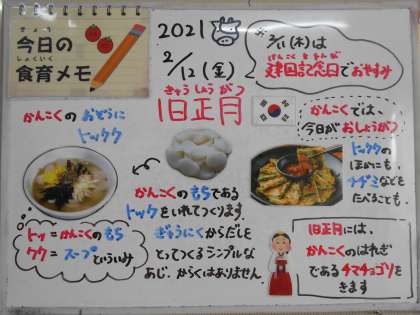 きょう
今日の
しょくいく
食育メモ
2021
2/12(金)
きゅうしょうがつ
旧正月
2/11(木)は
けんこくきねんび
建国記念日でおやすみ
かんこくでは、
今日がおしょうがつ
かんこくのおぞうに
トックク
トッ=かんこくのもち
クク=スープといういみ
かんこくのもちである
トックをいれてつくります。
ぎゅうにくからだしを
とってつくるシンプルな
あじ。からくはありません。
トッククの
ほかにも、
チヂミなども
たべることも。
旧正月には、
かんこくのはれぎ
であるチマチョゴリを
きます